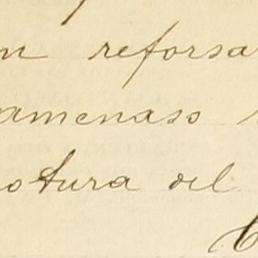 n reforsa
amenaso
otura del